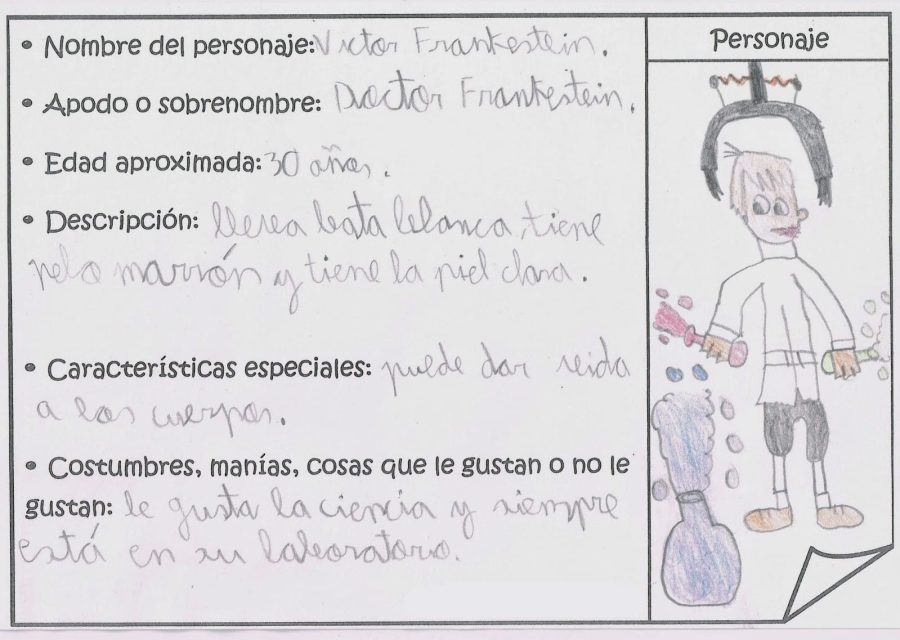 • Nombre del personaje: Victor Frankestein.
• Apodo o sobrenombre: Doctor Frankestein.
• Edad aproximada: 30 años.
• Descripción: lleva bata blanca, tiene
pelo marrón y tiene la piel clara.
• Características especiales: puede dar vida
a los cuerpos.
• Costumbres, manías, cosas que le gustan o no le
gustan: le gusta la ciencia y siempre
está en su laboratorio.
Personaje